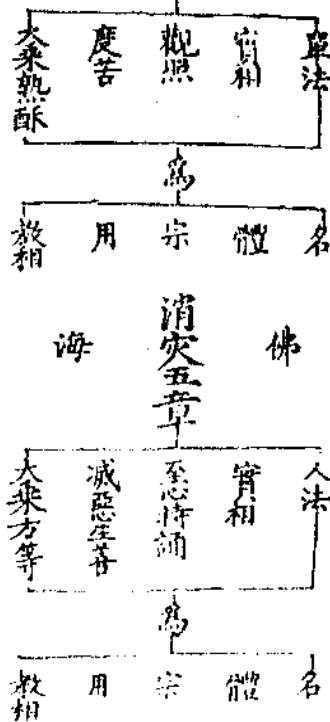 單法
實相
觀照
度苦
大乘熟酥
為
名
體
宗
用
教相
佛
消灾五章
海
人法
實相
至心持誦
滅惡生善
大乘方等
為
名
體
宗
用
教相